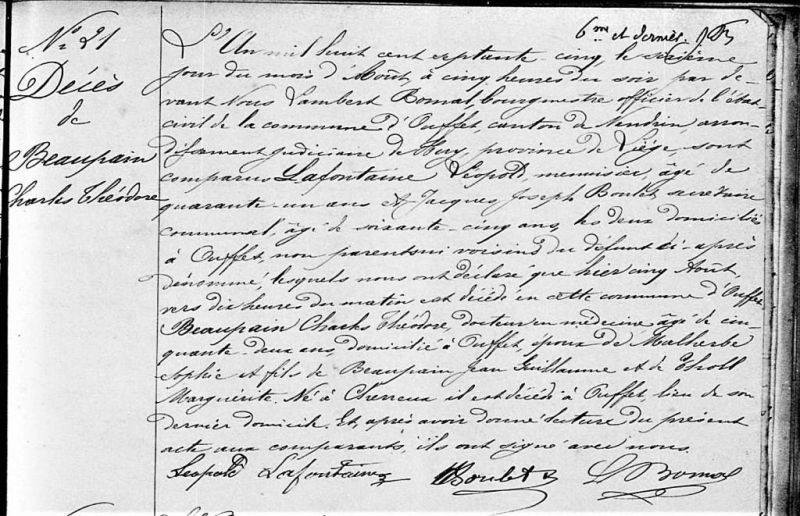 N° 21
Décès
de
Beaupain
Charles Théodore
6me et dernier
L'An mil huit cent septante-cinq, le sixième
jour du mois d'Août, à cinq heures du soir par de-
vant Nous Lambert Bomal, bourgmestre officier de l'état
civil de la commune d'Ouffet, canton de Nandrin, arron-
dissement judiciaire de Huy, province de Liége, sont
comparus Lafontaine Léopold, menuisier, âgé de
quarante-un ans et Jacques Joseph Boulet, secrétaire
communal, âgé de soixante-cinq ans, les deux domiciliés
à Ouffet, non parents ni voisins du défunt ci-après
dénommé, lesquels nous ont déclaré que hier cinq Août,
vers dix heures du matin est décédé en cette commune d'Ouffet
Beaupain Charles Théodore, docteur en médecine âgé de cin-
quante-deux ans, domicilié à Ouffet, époux de Malherbe
Sophie et fils de Beaupain Jean Guillaume et de Tholl
Marguerite. Né à Cherreux il est décédé à Ouffet, lieu de son
dernier domicile. Et, après avoir donné lecture du présent
acte aux comparants, ils ont signé avec nous.
Léopold Lafontaine JJBoulet L Bomal